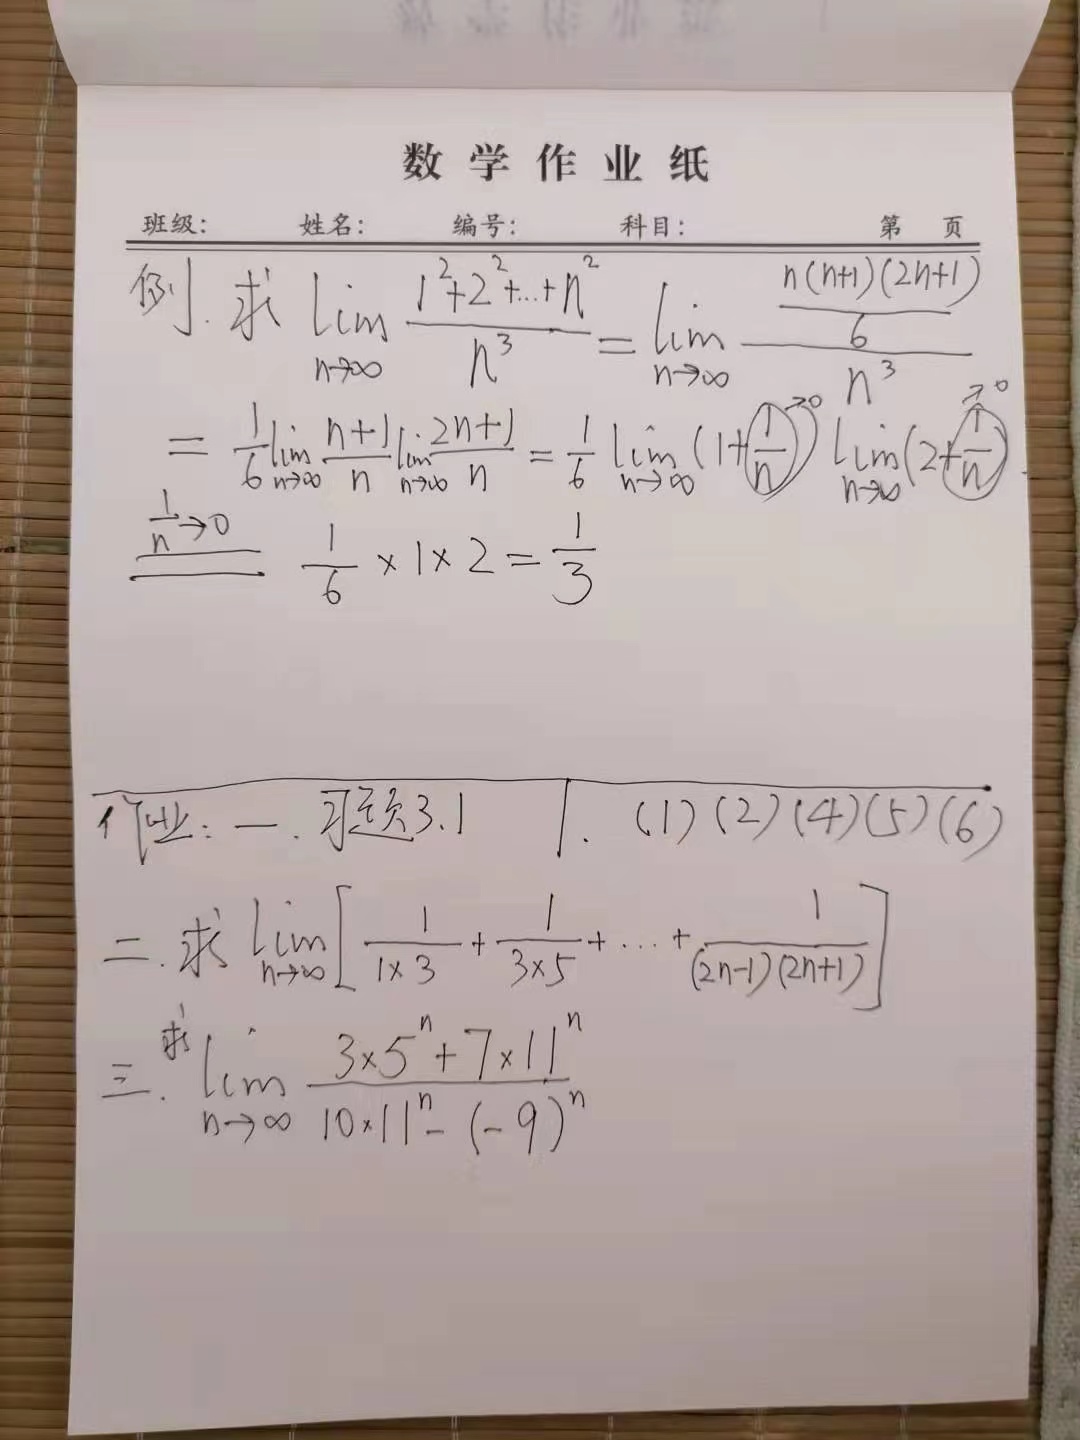 数学作业纸
班级: 姓名: 编号: 科目: 第 页
例. 求 lim n→∞ (1²+2²+...+n²)/n³ = lim n→∞ (n(n+1)(2n+1)/6)/n³
= 1/6 lim n→∞ (n+1)/n lim n→∞ (2n+1)/n = 1/6 lim n→∞ (1+1/n) →0 lim n→∞ (2+1/n) →0.
1/n→0 = 1/6 × 1 × 2 = 1/3
作业: 一. 习题3.1 1. (1)(2)(4)(5)(6)
二. 求 lim n→∞ [1/(1×3) + 1/(3×5) + ... + 1/((2n-1)(2n+1))]
三. 求 lim n→∞ (3×5ⁿ+7×11ⁿ)/(10×11ⁿ-(-9)ⁿ)